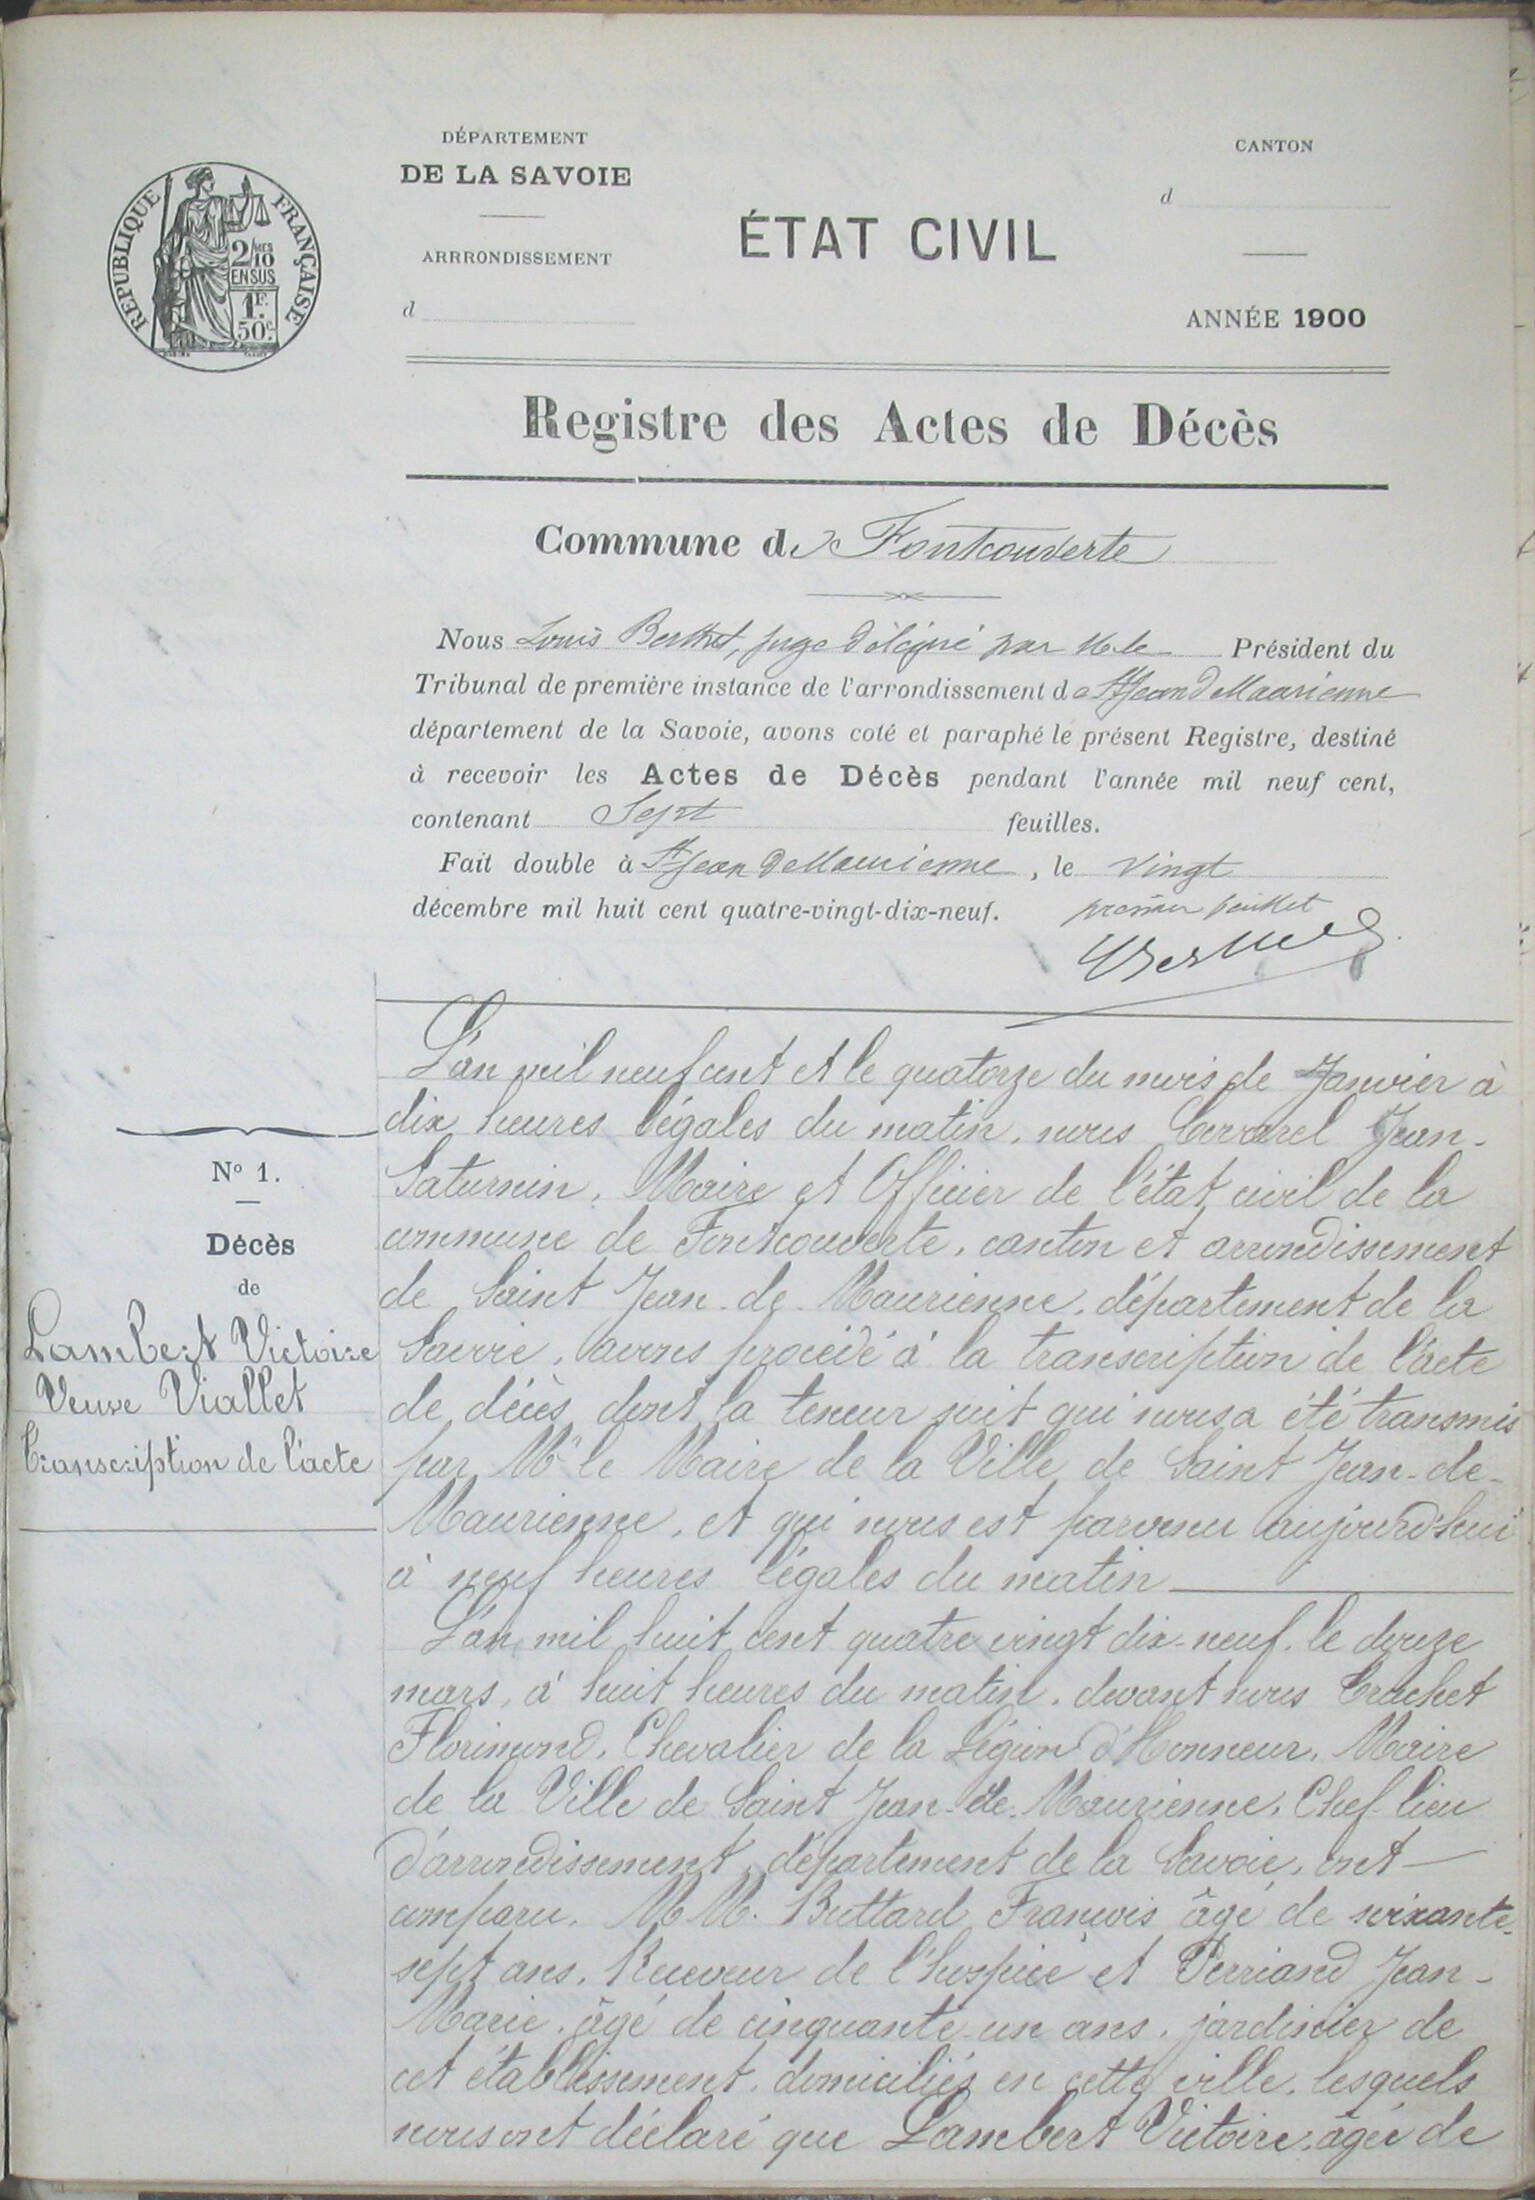 DÉPARTEMENT
DE LA SAVOIE
ARRRONDISSEMENT
d
RÉPUBLIQUE FRANÇAISE
2/10 MES
EN SUS
1F.
50c.
ÉTAT CIVIL
CANTON
d
ANNÉE 1900
Registre des Actes de Décès
Commune de Fontcouverte
Nous Louis Berthet, juge délégué par M. le Président du
Tribunal de première instance de l'arrondissement de St Jean de Maurienne
département de la Savoie, avons coté et paraphé le présent Registre, destiné
à recevoir les Actes de Décès pendant l'année mil neuf cent,
contenant Sept feuilles.
Fait double à St Jean de Maurienne, le Vingt
décembre mil huit cent quatre-vingt-dix-neuf.
premier feuillet
N° 1.
Décès
de
Lambert Victoire
Veuve Viallet
Transcription de l'acte
L'an mil neuf cent et le quatorze du mois de Janvier à
dix heures légales du matin, nous Covarel Jean-
Saturnin, Maire et Officier de l'état civil de la
commune de Fontcouverte, canton et arrondissement
de Saint Jean-de-Maurienne, département de la
Savoie, avons procédé à la transcription de l'acte
de décès dont la teneur suit qui nous a été transmis
par Mr le Maire de la Ville de Saint Jean-de-
Maurienne, et qui nous est parvenu aujourd'hui
à neuf heures légales du matin
L'an mil huit cent quatre vingt dix-neuf, le douze
mars, à huit heures du matin, devant nous Truchet
Florimond, Chevalier de la Légion d'Honneur, Maire
de la Ville de Saint Jean-de-Maurienne, Chef-lieu
d'arrondissement, département de la Savoie, ont
comparu, M.M. Buttard François âgé de soixante-
sept ans, Receveur de l'hospice et Perriand Jean-
Marie, âgé de cinquante-un ans, jardinier de
cet établissement, domiciliés en cette ville, lesquels
nous ont déclaré que Lambert Victoire, âgée de